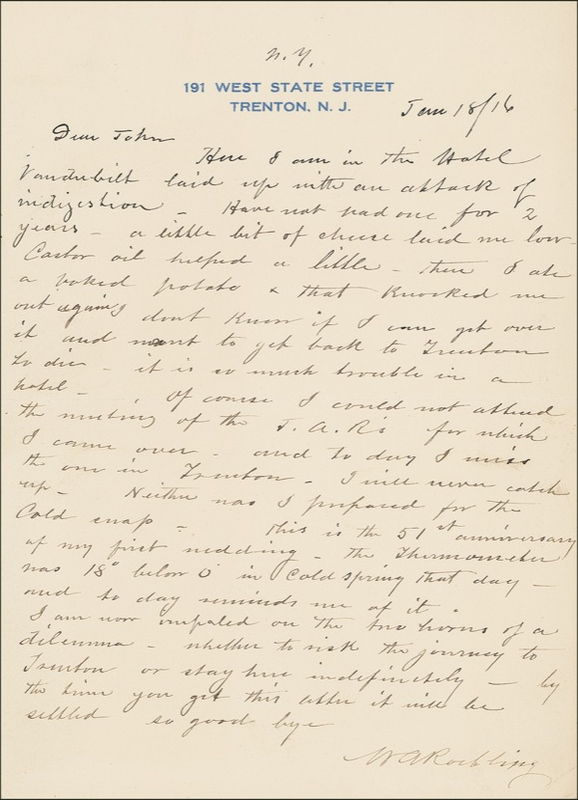 N.Y.
191 WEST STATE STREET
TRENTON, N. J.
Jan 18/16
Dear John
Here I am in the Hotel
Vanderbilt laid up with an attack of
indigestion – Have not had one for 2
years – a little bit of cheese laid me low –
Castor oil helped a little – then I ate
a baked potato & that knocked me
out again I dont know if I can get over
it and want to get back to Trenton
to die – it is so much trouble in a
hotel – Of course I could not attend
the meeting of the J. A. Rs for which
I came over – and to day I miss
the one in Trenton – I will never catch
up – Neither was I prepared for the
Cold snap – This is the 51st anniversary
of my first wedding – the Thermometer
was 18° below 0 in Cold spring that day –
and to day reminds me of it.
I am now impaled on the two horns of a
dilemma – whether to risk the journey to
Trenton or stay here indefinitely – by
the time you get this letter it will be
settled so good bye
WA Roebling